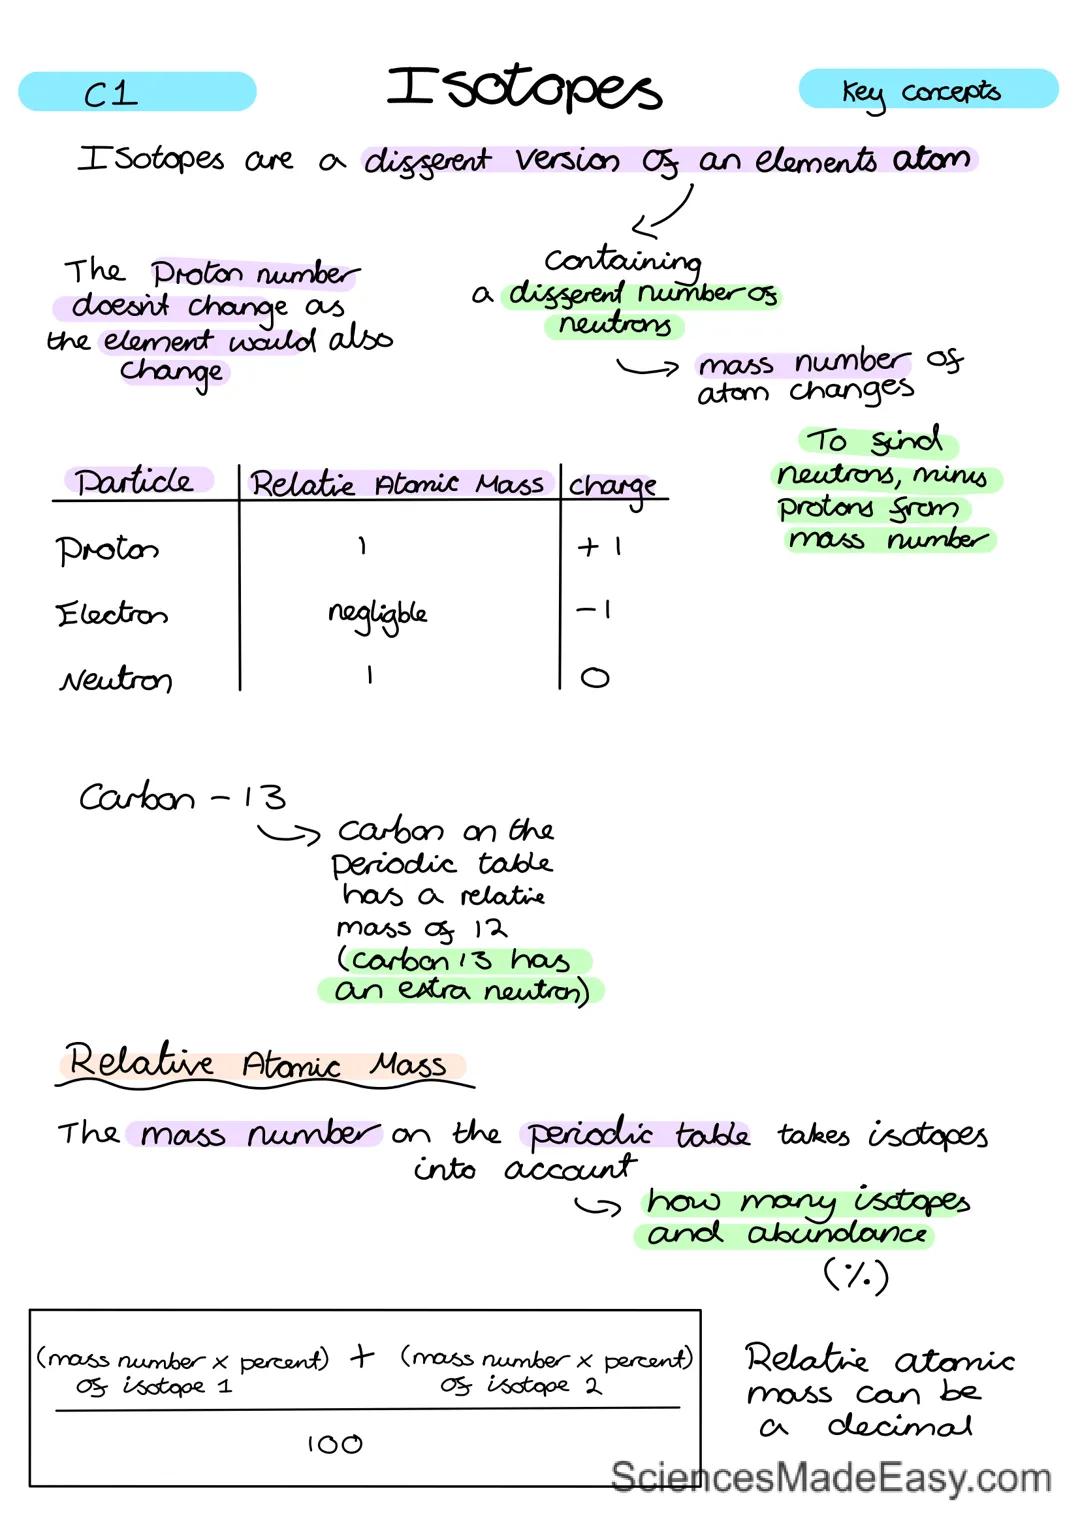 C1
Isotopes
Key concepts
Isotopes are a different version of an elements atom
The Proton number
doesn't change as
the element would also
change
Containing
a different number of
neutrons
mass number of
atom changes
To find
neutrons, minus
protons from
mass number
Particle Relatie Atomic Mass charge
Proton 1 +1
Electron negligble -1
Neutron 1 0
Carbon - 13
Carbon on the
Periodic table
has a relatie
mass of 12
(carbon 13 has
an extra neutron)
Relative Atomic Mass
The mass number on the periodic table takes isotopes
into account
how many isotopes
and abundance
(%)
(mass number x percent) + (mass number x percent)
of isotope 1 of isotope 2
100
Relatie atomic
mass can be
a decimal
SciencesMadeEasy.com